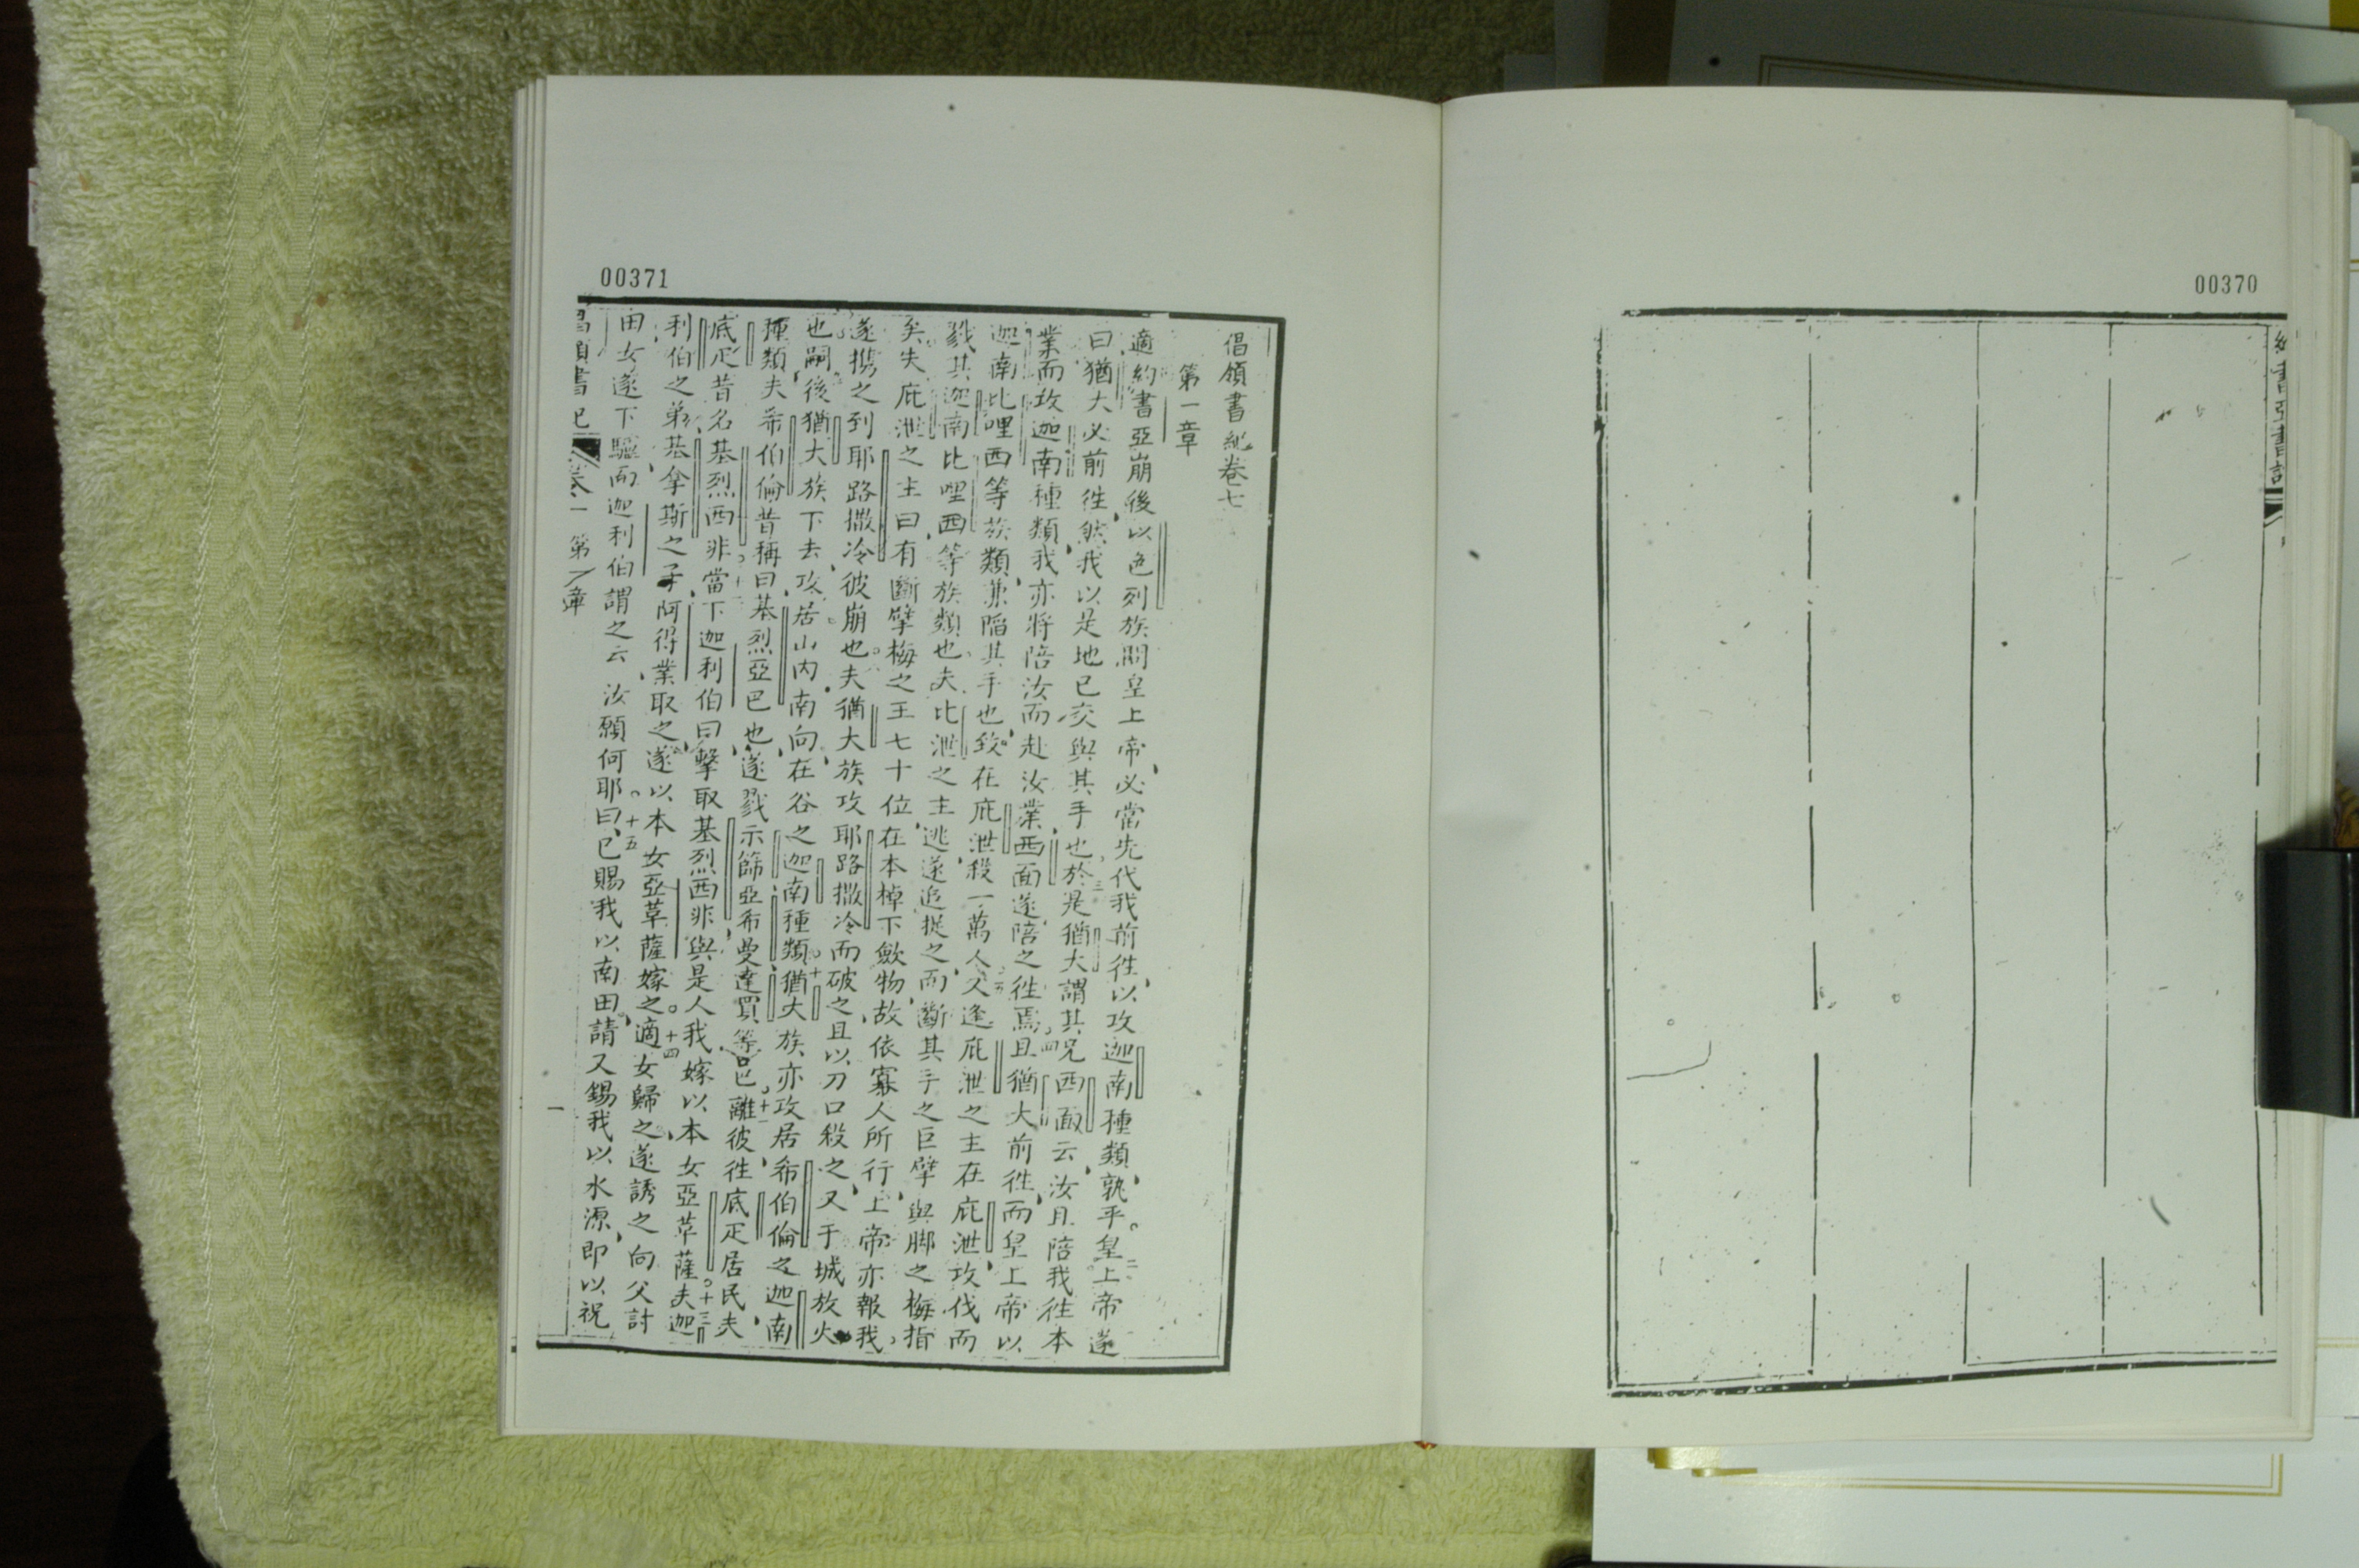 00370
00371
倡領書紀卷七
第一章
適約書亞崩後以色列族問皇上帝必當先代我前徃以攻迦南種類孰乎二皇上帝遂
曰猶大必前徃然我以是地已交與其手也三於是猶大謂其兄西面云汝且陪我徃本
業而攻迦南種類我亦將陪汝而赴汝業西面遂陪之徃焉四且猶大前徃而皇上帝以
迦南比哩西等族類兼陷其手也致在庇泄殺一萬人五又逢庇泄之主在庇泄攻伐而
戮其迦南比哩西等族類也夫比泄之主逃遂追捉之而斷其手之巨擘與脚之梅指
矣夫庇泄之主曰有斷擘梅之王七十位在本棹下歛物故依寡人所行上帝亦報我
遂携之到耶路撒冷彼崩也夫猶大族攻耶路撒冷而破之且以刀口殺之又于城放火
也嗣後猶大族下去攻居山內南向在谷之迦南種類十猶大族亦攻居希伯倫之迦南
種類夫希伯倫昔稱曰基烈亞巴也遂戮示篩亞希曼達買等邑十一離彼徃底疋居民夫
底疋昔名基烈西非十二當下迦利伯曰擊取基烈西非與是人我嫁以本女亞革薩十三夫迦
利伯之弟基拿斯之子阿得業取之遂以本女亞革薩嫁之十四適女歸之遂誘之向父討
田女遂下驢而迦利伯謂之云汝願何耶十五曰已賜我以南田請又錫我以水源即以祝
倡領書紀 卷一 第一章
一